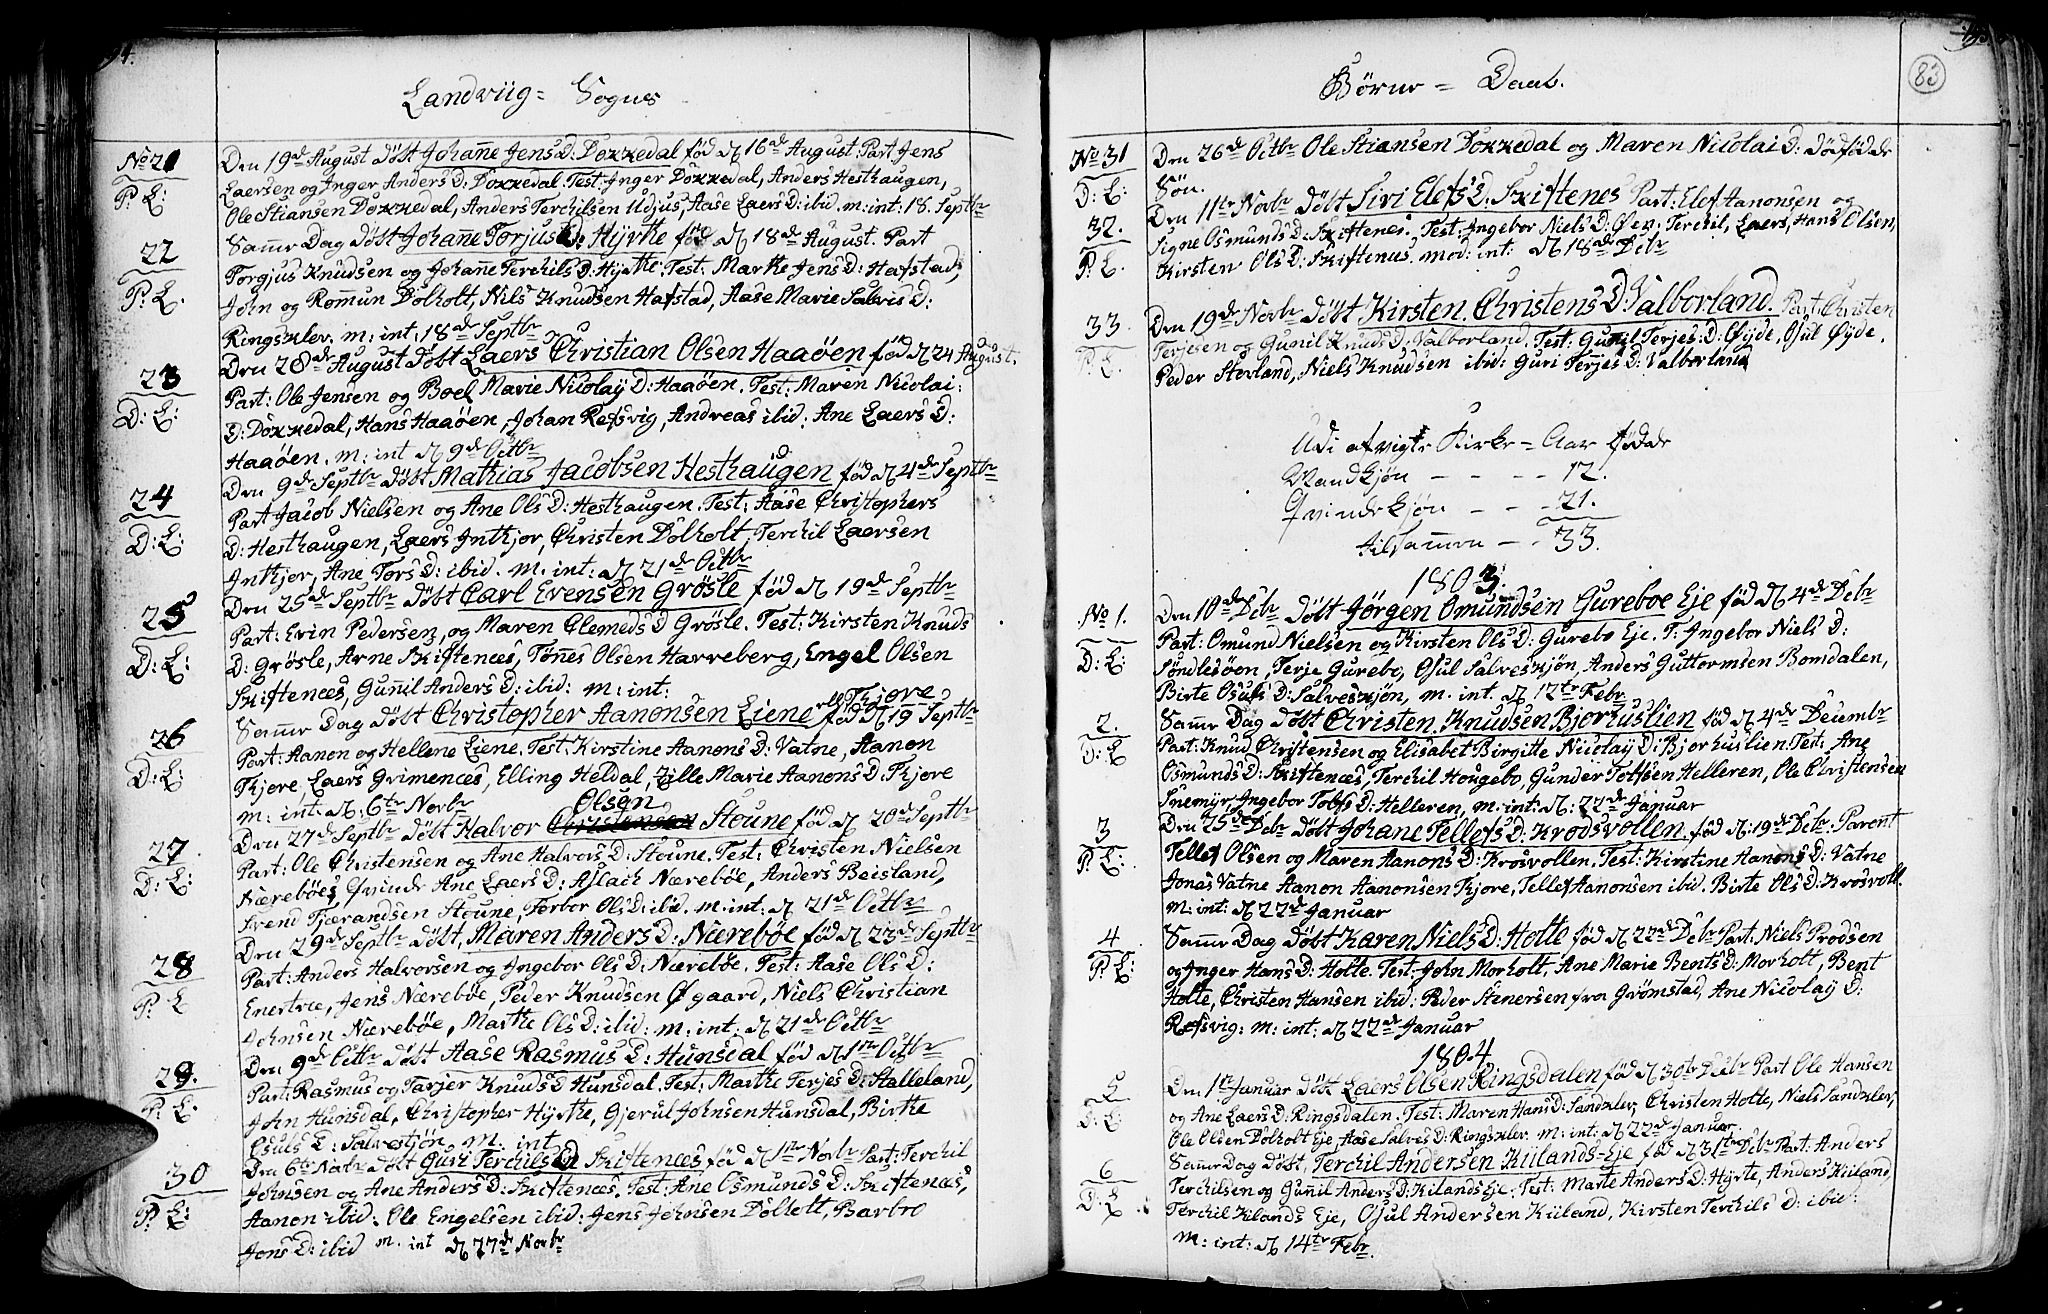 94.
Landviig = Sogns
No 21
P: L:
Den 19de August døbt Johanne Jens D: Doxxedal fød d 16de August. Part Jens
Laersen og Inger Anders D: Doxxedal. Test: Inger Doxxedal, Anders Hesthaugen,
Ole Stiansen Doxxedal, Anders Terchilsen Udjus, Aase Laers D: ibid. m: int: 18. Septbr
22
P: L.
Samme Dag døbt Johanne Torjus D: Hyrthe fød d 18de August. Part
Torgjus Knudsen og Johanne Terchils D: Hyrthe. Test: Marthe Jens D: Hafstad,
John og Rommun Dolholt, Nils Knudsen Hafstad, Aase Marie Salvis D:
Ringsklev. m: int: 18de Septbr
23
D: L:
Den 28de August døbt Laers Christian Olsen Haaøen fød d 24 August.
Part: Ole Jensen og Boel Marie Nicolay D: Haaøen. Test: Maren Nicolai:
D: Doxxedal, Hans Haaøen, Johan Refsvig, Andreas ibid: Ane Laers D:
Haaøen. m: int d 9de Octbr
24
D: L:
Den 9de Septbr døbt Mathias Jacobsen Hesthaugen fød d 4de Septbr
Part Jacob Nielsen og Ane Ols D: Hesthaugen. Test: Aase Christophers
D: Hesthaugen, Laers Inthjor, Christen Dolholt, Terchil Laersen
Inthjor, Ane Tors D: ibid. m: int: d 21de Octbr
25
D: L:
Den 25de Septbr døbt Carl Evensen Grösle fød d 19de Septbr
Part: Evin Pedersen, og Maren Clemeds D Grösle. Test: Kirsten Knuds
D: Grösle, Arne Skiftenes, Tönnes Olsen Harreberg, Engel Olsen
Skiftenes, Gunnil Anders D: ibid: m: int:
26
D: L:
Samme Dag døbt Christopher Aanonsen Liene ell: Fjore fød d 19 Septbr
Part: Aanon og Hellene Liene. Test: Kirstine Aanons D: Vatne, Aanon
Fjore, Laers Grimenes, Elling Heldal, Zille Marie Aanons D: Fjore
m: int: d: 6te Novbr
27
D: L:
Den 27de Septbr døbt Halvor Olsen Stoune fød d 20de Septbr
Part: Ole Christensen og Ane Halvors D: Stoune. Test: Christen Nielsen
Nærebøes Qvinde Ane Laers D: Aslach Nærebøe, Anders Beisland,
Svend Tjærandsen Stoune, Torbor Ols D: ibid. m: int: d 21de Octbr
28
P: L
Den 29de Septbr døbt, Maren Anders D: Nærebøe fød d 23de Septbr
Part: Anders Halvorsen og Ingebor Ols D: Nærebøe. Test: Aase Ols D:
Enertræ, Jens Nærebøe, Peder Knudsen Øgaard, Niels Christian
Johnsen Nærebøe, Marthe Ols D: ibid: m: int: d 21de Octbr
29.
P: L:
Den 9de Octbr døbt Aase Rasmus D: Hunsdal fød d 1ste Octbr
Part: Rasmus og Tarjer Knuds D Hunsdal. Test: Marthe Terjes D: Stalleland,
John Hunsdal, Christopher Hyrthe, Gjerul Johnsen Hunsdal, Birthe
Osuls D: Salvestjön. m: int
30
P: L:
Den 6te Novbr døbt Guri Terchils D Skiftenes fød d 1ste Novbr Part: Terchil
Johnsen og Ane Anders D: Skiftenes, Test: Ane Osmunds D: Skiftenes,
Aanon ibid: Ole Engelsen ibid: Jens Johnsen Dolholt, Barbro
Jons D: ibid m. int d 27de Novbr
Börne = Daab.
83
No 31
D: L:
Den 26de Octbr Ole Stiansen Doxxedal og Maren Nicolai D: dødfødde
Søn.
32.
P: L.
Den 11te Novbr døbt Siri Elefs D: Skiftenes Part: Elef Aanonsen og
Signe Osmunds D: Skiftenes. Test: Ingebor Niels D: Øen: Terchil, Laers, Hans Olsen,
Kirsten Ols D: Skiftenes. mod: int: d 18de Debr
33.
P: L.
Den 19de Novbr døbt Kirsten Christens D: Valborland. Part: Christen
Terjesen og Gunil Knuds D: Valborland, Test: Gunil Terjes D: Øyde, Osul Øyde,
Peder Stevland, Niels Knudsen ibid: Guri Terjes D: Valborland
Udi afvigte Kirke = Aar fødde
Mandkjøn - - - - 12.
Qvindekjøn - - - 21.
tilsamen - - 33.
1803.
No 1.
D: L:
Den 10de Debr døbt Jørgen Omundsen Gureboe Eje fød d 4de Debr
Part: Omund Nielsen og Kirsten Ols D: Gurebo Eje. T: Ingebor Niels D:
Søndlesöen, Terje Gurebo, Osul Salveskjön, Anders Guttormsen Bomdalen,
Birte Osuls D: Salveskjön, m. int. d 12te Febr.
2.
D: L
Samme Dag døbt Christen Knudsen Bjorhuslien fød d 4de Decembr
Part: Knud Christensen og Elisabet Birgitte Nicolay D: Bjorhuslien. Test: Ane
Osmunds D: Skiftenes, Terchil Hougebo, Gunder Tofsen Helleren, Ole Christensen
Snemyr, Ingebor Tofs D: Helleren, m: int: d: 22de Januar
3
P: L:
Den 25de Debr døbt Johane Tellefs D: Krosvollen. fød d: 19de Debr: Parent
Tellef Olsen og Maren Aanons D: Krosvollen. Test: Kirstine Aanons D: Vatne
Jonas Vatne Aanon Aanonsen Fjore, Tellef Aanonsen ibid. Birte Ols D: Krosvoll.
m: int: d 22de Januar
4
P: L:
Samme Dag døbt Karen Niels D: Holte fød d 22de Debr Part: Niels Prodsen
og Inger Hans D: Holte. Test: John Morholt, Ane Marie Bents D: Morholt, Bent
Holte, Christen Hansen ibid: Peder Stenersen fra Grömstad, Ane Nicolay D:
Refsvig: m: int: d 22de Januar
1804
5
D: L:
Den 1ste Januar døbt Laers Olsen Ringsdalen fød d 30te Debr Part Ole Hansen
og Ane Laers D: Ringsdalen. Test: Maren Hans D: Sandklev, Christen Holte, Niels Sandklev,
Ole Olsen Dolholt Eje, Aase Salves D: Ringsklev. m: int: d 22de Januar.
6
D: L
Samme Dag døbt, Terchil Andersen Kiilands-Eje fød d 31te Debr Part: Anders
Terchilsen og Gunnil Anders D: Kilands Eje. Test: Marte Anders D: Hyrte, Anders Kiiland,
Terchil Kilands Eje, Osul Andersen Kiiland, Kirsten Terchils D: ibid:
m: int: d 14te Febr.